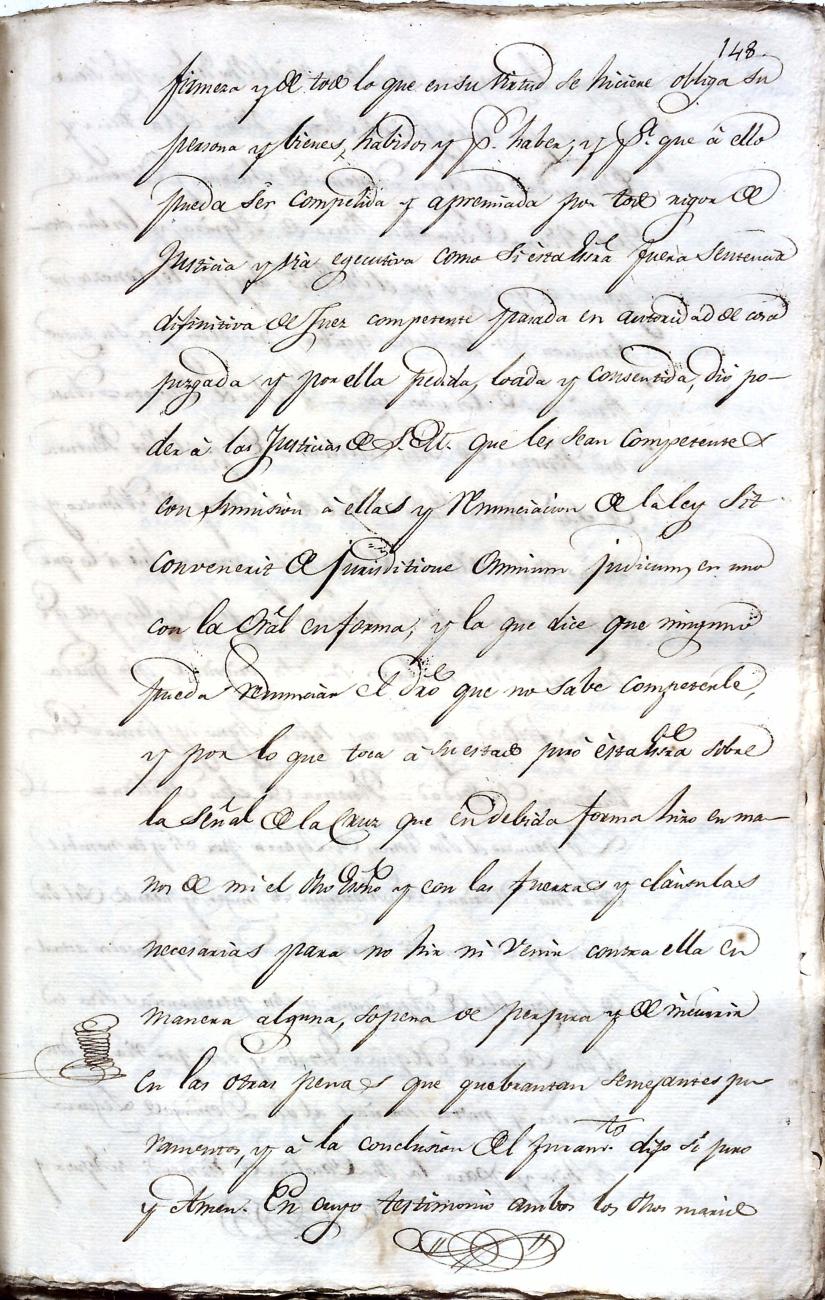 148.
firmeza y de todo lo que en su virtud se hiciere obliga su
persona y bienes, habidos y pr. haber, y pa. que à ello
pueda sér compelida y apremiada por todo rigor de
Justicia y via egecutiva como si ésta Essra fuera Senténcia
difinitiva de Juez competente pasada en autoridad de cosa
juzgada y por ella pedida, loada y consentida, dió po-
der à las Justicias de S.M. que les sean competentes
con sumision à ellas y renunciacion de la ley Sit
convenerit de Jurisditione Omnium judicum, en uno
con la Gràl en forma, y la que dice que ninguno
pueda renunciar el dro que no sabe competerle,
y por lo que toca à su estado juró ésta Essra sobre
la Señal de la Cruz que en debida forma hizo en ma-
nos de mi el dho Essno y con las fuerzas y clàusulas
necesarias para no hir ni venir contra ella en
manera alguna, sopena de perjura y de incurrir
en las otras penas que quebrantan semejantes ju-
ramentos, y à la conclusion del juramto. dijo sí juro
y Amen. En cuyo testimonio ambos los dhos marido